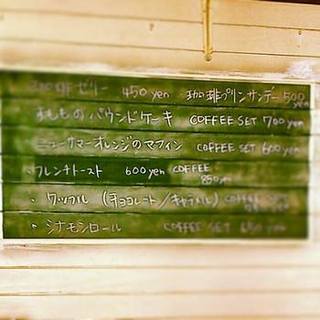 珈琲ゼリー 450 yen 珈琲プリンサンデー 500 yen
もものパウンドケーキ COFFEE SET 700 yen
ニューサマーオレンジのマフィン COFFEE SET 600 yen
・フレンチトースト 600 yen COFFEE
850 yen
・ワッフル (チョコレート/キャラメル) COFFEE SET
・シナモンロール COFFEE SET